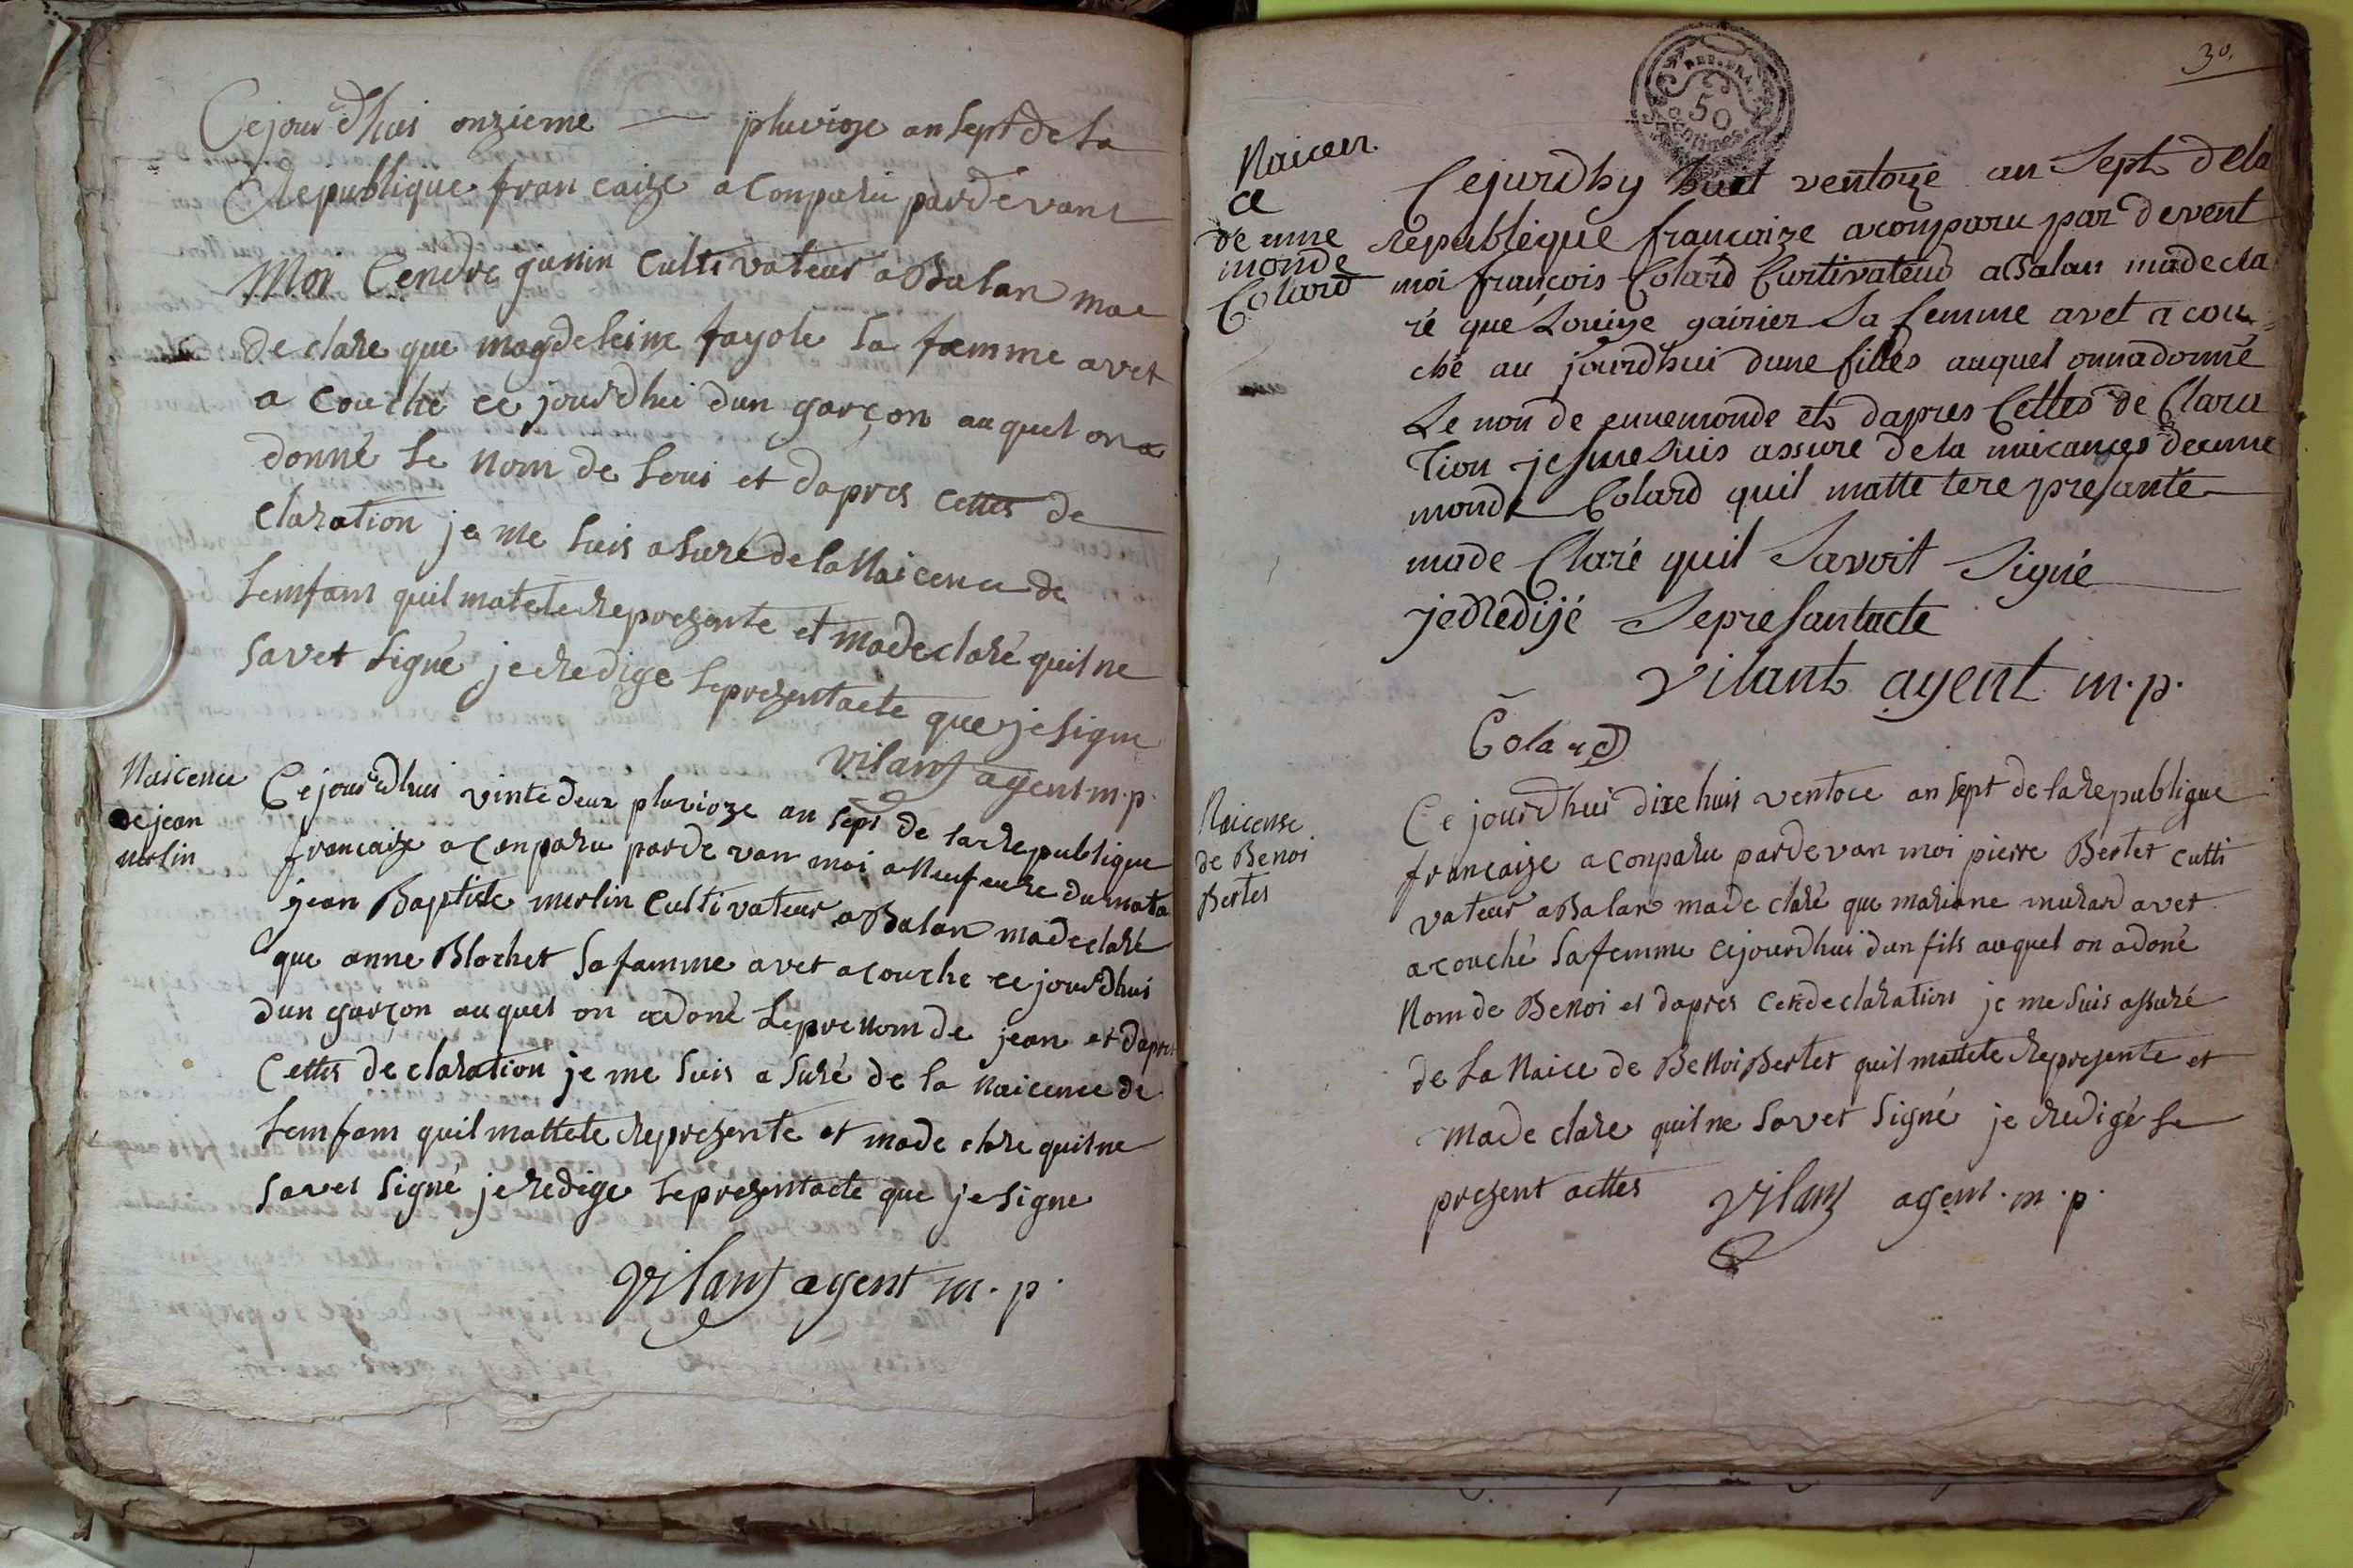 Cejourdhui onzieme — pluvioze an sept de la
Republique francaize a conparu pardevant
Moi Cendre gunin Cultivateur a Balan ma
de clare que magdeleine fayole sa femme avet
a couché ce jourdhui dun garçon auquel on a
donné le nom de loui et dapres cettes de
claration je me suis asuré de la Naicence de
lemfant quil matete represente et madeclaré quil ne
savet signé je redige le prezentacte que je signe
vilant agent m.p.
Naicence
de jean
merlin
Cejourdhui vinte deux pluvioze an sept de la republique
francaize a conparu pardevan moi a Neuf eure du mata
jean Baptiste merlin Cultivateur a Balan madeclaré
que anne Blochet sa famme avet acouche ce jourdhui
dun garçon auquel on a doné le prenom de jean et dapres
Cettes de claration je me suis asuré de la naicence de
lemfam quil mattete reprezente et made clare quil ne
savet signé je redige le prezentacte que je signe
vilant agent m.p.
30.
REP. FRA.
50
centimes
Naicen
ce
de enne
monde
Colard
Cejurdhy huit ventoze an sept dela
republique francaize acomparu par devent
moi françois Colard Curtivateur a Balan madecla
ré que Louize gairier sa femme avet a cou
ché au jourdhui dune filles auquel onnadonné
Le non de ennemonde et dapres Cettes de Clara
tion je me suis assure dela naicances deenne
monde Colard quil matte tere presante
made Claré quil savoit signé
je Redijé Le presantacte
vilant agent m.p.
Colard
Naicense
de Benoi
Bertet
Ce jourdhui dixe huit ventoce an sept de la republique
francaize a conparu pardevan moi pierre Bertet culti
vateur a Balan made claré que mariane murard avet
acouché sa femme cejourdhui dun fils auquel on a doné
Nom de Benoi et dapres cetedeclaration je me suis assuré
de la Naice de Benoi Bertet quil mattete represente et
made clare quil ne savet signé je redigé le
prezent acttes vilant agent.m.p.